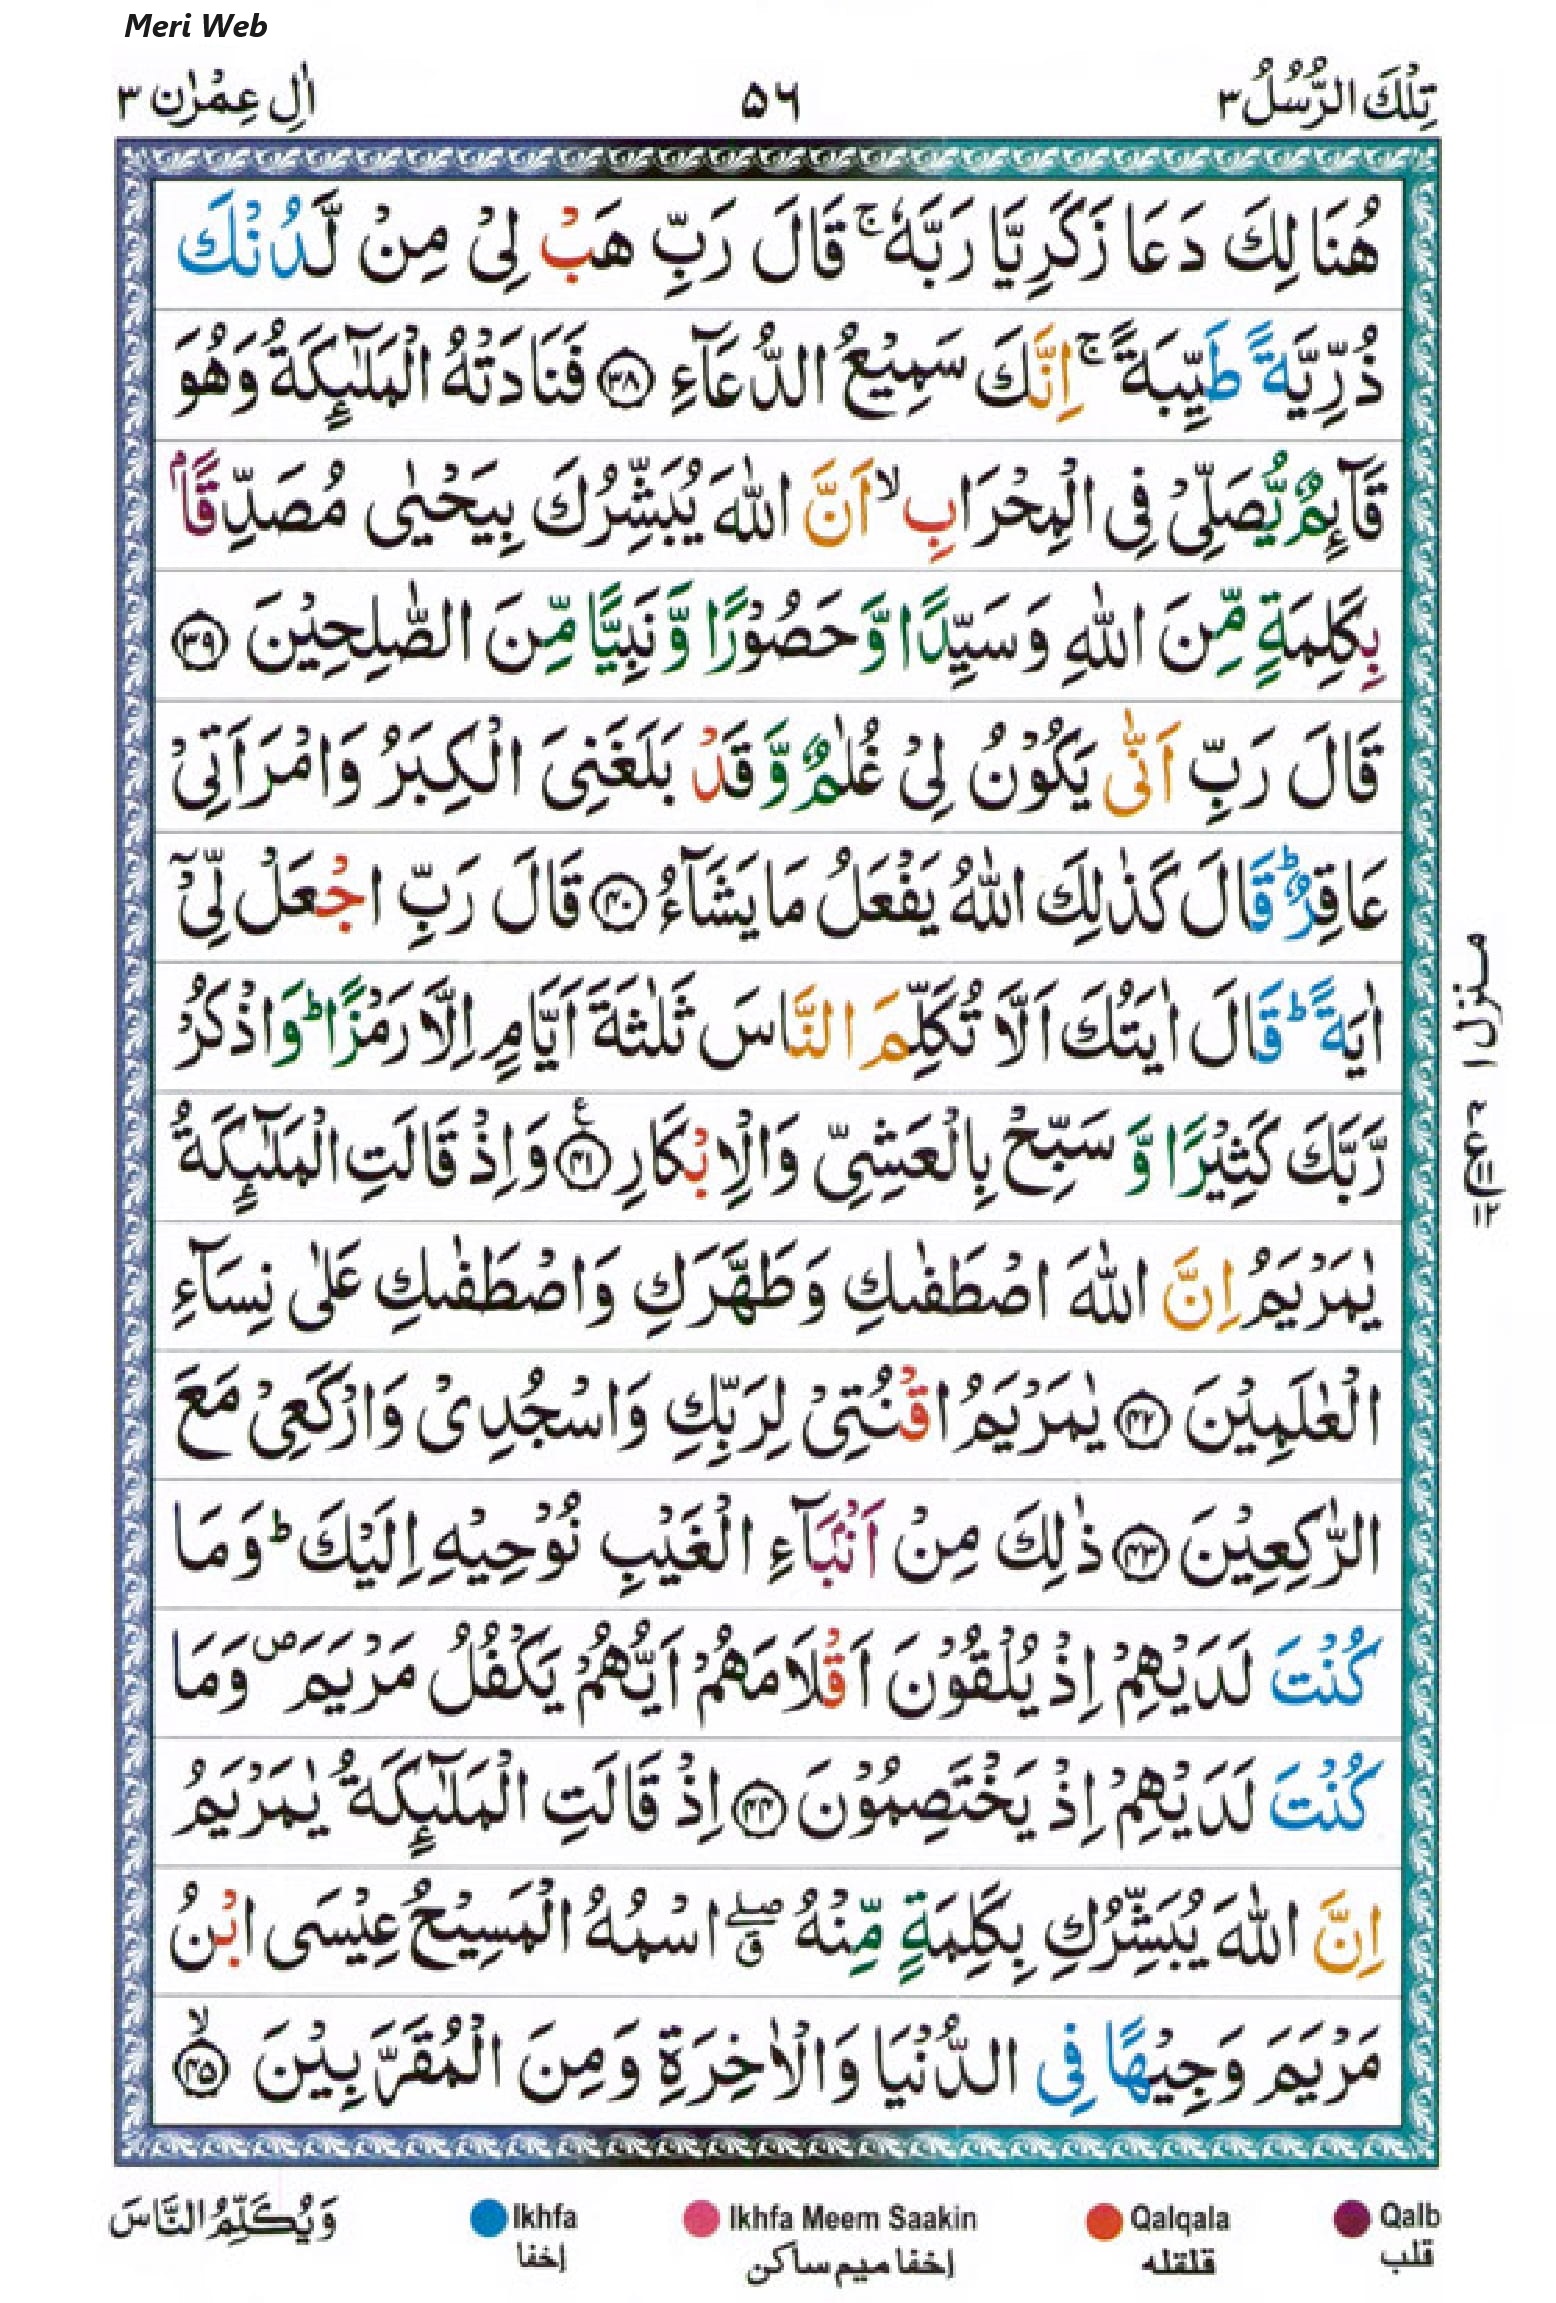 Meri Web
تِلْكَ الرُّسُلُ ٣
٥٦
اٰلِ عِمْرٰن ٣
هُنَالِكَ دَعَا زَكَرِيَّا رَبَّهٗ ۚ قَالَ رَبِّ هَبْ لِیْ مِنْ لَّدُنْكَ
ذُرِّيَّةً طَيِّبَةً ۚ اِنَّكَ سَمِيْعُ الدُّعَآءِ ﴿٣٨﴾ فَنَادَتْهُ الْمَلٰٓئِكَةُ وَهُوَ
قَآئِمٌ يُّصَلِّیْ فِی الْمِحْرَابِ ۙ اَنَّ اللّٰهَ يُبَشِّرُكَ بِيَحْيٰی مُصَدِّقًاۢ
بِكَلِمَةٍ مِّنَ اللّٰهِ وَسَيِّدًا وَّحَصُوْرًا وَّنَبِيًّا مِّنَ الصّٰلِحِيْنَ ﴿٣٩﴾
قَالَ رَبِّ اَنّٰی يَكُوْنُ لِیْ غُلٰمٌ وَّقَدْ بَلَغَنِیَ الْكِبَرُ وَامْرَاَتِیْ
عَاقِرٌ ؕ قَالَ كَذٰلِكَ اللّٰهُ يَفْعَلُ مَا يَشَآءُ ﴿٤٠﴾ قَالَ رَبِّ اجْعَلْ لِّیْۤ
اٰيَةً ؕ قَالَ اٰيَتُكَ اَلَّا تُكَلِّمَ النَّاسَ ثَلٰثَةَ اَيَّامٍ اِلَّا رَمْزًا ؕ وَاذْكُرْ
رَّبَّكَ كَثِيْرًا وَّسَبِّحْ بِالْعَشِیِّ وَالْاِبْكَارِ ﴿٤١﴾ ع وَاِذْ قَالَتِ الْمَلٰٓئِكَةُ
يٰمَرْيَمُ اِنَّ اللّٰهَ اصْطَفٰىكِ وَطَهَّرَكِ وَاصْطَفٰىكِ عَلٰی نِسَآءِ
الْعٰلَمِيْنَ ﴿٤٢﴾ يٰمَرْيَمُ اقْنُتِیْ لِرَبِّكِ وَاسْجُدِیْ وَارْكَعِیْ مَعَ
الرّٰكِعِيْنَ ﴿٤٣﴾ ذٰلِكَ مِنْ اَنْۢبَآءِ الْغَيْبِ نُوْحِيْهِ اِلَيْكَ ؕ وَمَا
كُنْتَ لَدَيْهِمْ اِذْ يُلْقُوْنَ اَقْلَامَهُمْ اَيُّهُمْ يَكْفُلُ مَرْيَمَ ۪ وَمَا
كُنْتَ لَدَيْهِمْ اِذْ يَخْتَصِمُوْنَ ﴿٤٤﴾ اِذْ قَالَتِ الْمَلٰٓئِكَةُ يٰمَرْيَمُ
اِنَّ اللّٰهَ يُبَشِّرُكِ بِكَلِمَةٍ مِّنْهُ ۖق اسْمُهُ الْمَسِيْحُ عِيْسَی ابْنُ
مَرْيَمَ وَجِيْهًا فِی الدُّنْيَا وَالْاٰخِرَةِ وَمِنَ الْمُقَرَّبِيْنَ ﴿٤٥﴾ ۙ
منزل ١
وَيُكَلِّمُ النَّاسَ
Ikhfa
إخفا
Ikhfa Meem Saakin
إخفا ميم ساكن
Qalqala
قلقله
Qalb
قلب